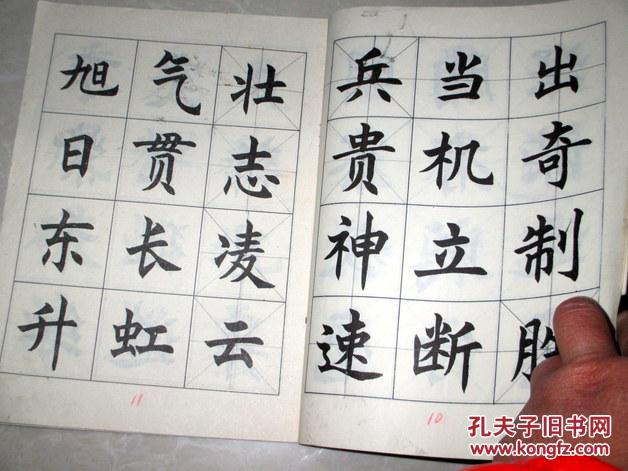 出奇制胜
当机立断
兵贵神速
10
壮志凌云
气贯长虹
旭日东升
11
孔夫子旧书网
www.kongfz.com